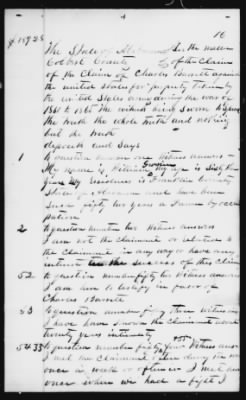 16
The State of Alabama In the matter
Colbert County of the Claim
of the Claim of Charles Barrett against
the united States for property taken by
the united States army during the war of
1861 to 1865 the witness being Sworn
the truth the whole truth and nothing
but the truth
deposeth and Says
1 To question number one witness answers
My name is William my age is Sixty
years my residence is Franklin County
State of Alabama and have been
Since fifty years a Farmer by occu
pation
2 To question number two Witness answers
I am not the claimant or related to
the claimant in any way or have any
interest in the success of this claim
52 To question number fifty two Witness answers
I am here to testify in favor of
Charles Barrett
53 To question number fifty three witness
I have known the claimant about
twenty years intimately
54 To question number fifty four Witness answ
I met the Claimant often during the war
once a week or oftener I met him
once where we had a fight I